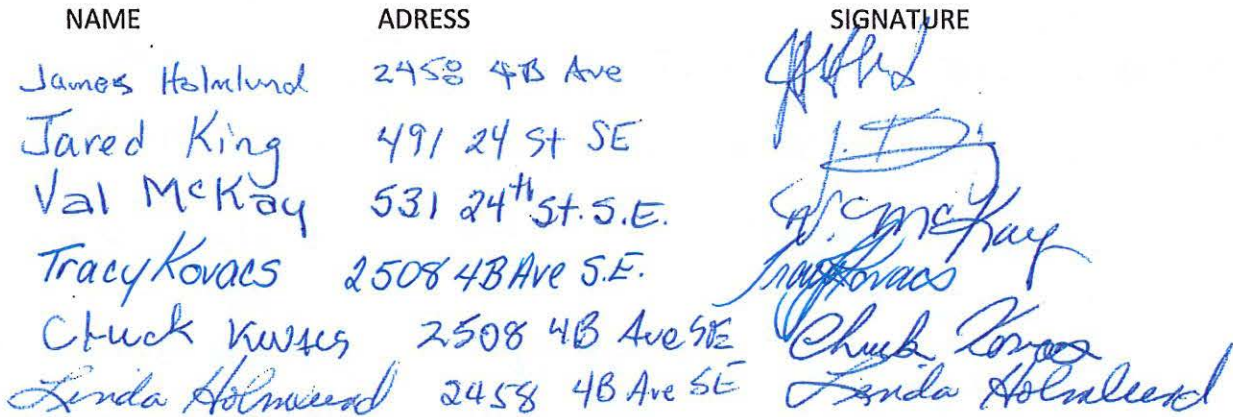 NAME ADRESS SIGNATURE
James Holmlund 2458 4B Ave
Jared King 491 24 St SE J.
Val McKay 531 24th St. S.E. V. McKay
Tracy Kovacs 2508 4B Ave S.E. Tracy Kovacs
Chuck Kovacs 2508 4B Ave SE Chuck Kovacs
Linda Holmlund 2458 4B Ave SE Linda Holmlund